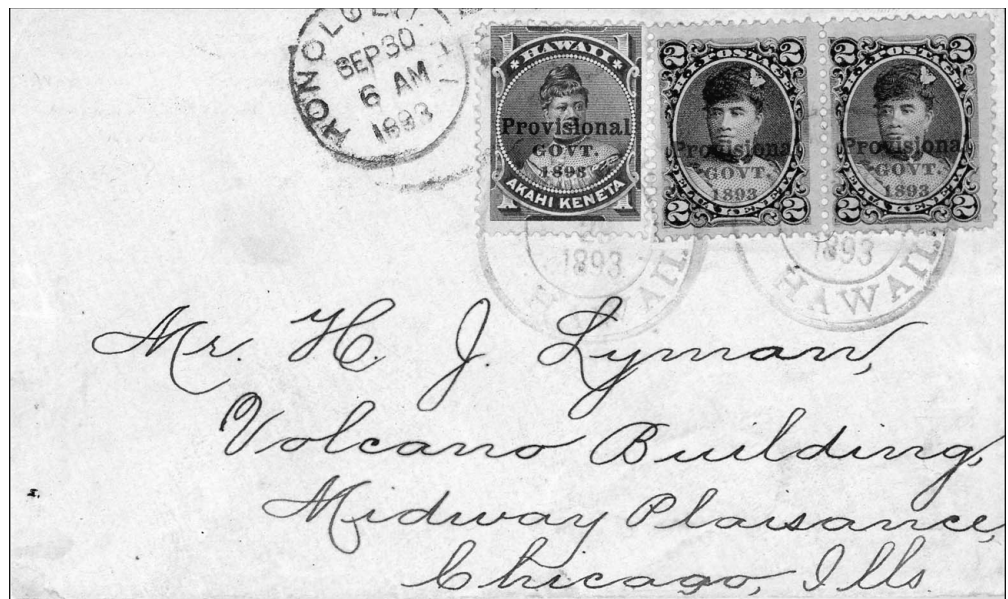 HONOLULU
SEP 30
6 AM
1893
HAWAII
Provisional
GOVT.
1893
AKAHI KENETA
1 1
POSTAGE
2 2
Provisional
GOVT.
1893
ELUA KENETA
2 2
POSTAGE
2 2
Provisional
GOVT.
1893
ELUA KENETA
2 2
1893
HAWAII.
1893
HAWAII.
Mr. H. J. Lyman,
Volcano Building,
Midway Plaisance,
Chicago, Ills.